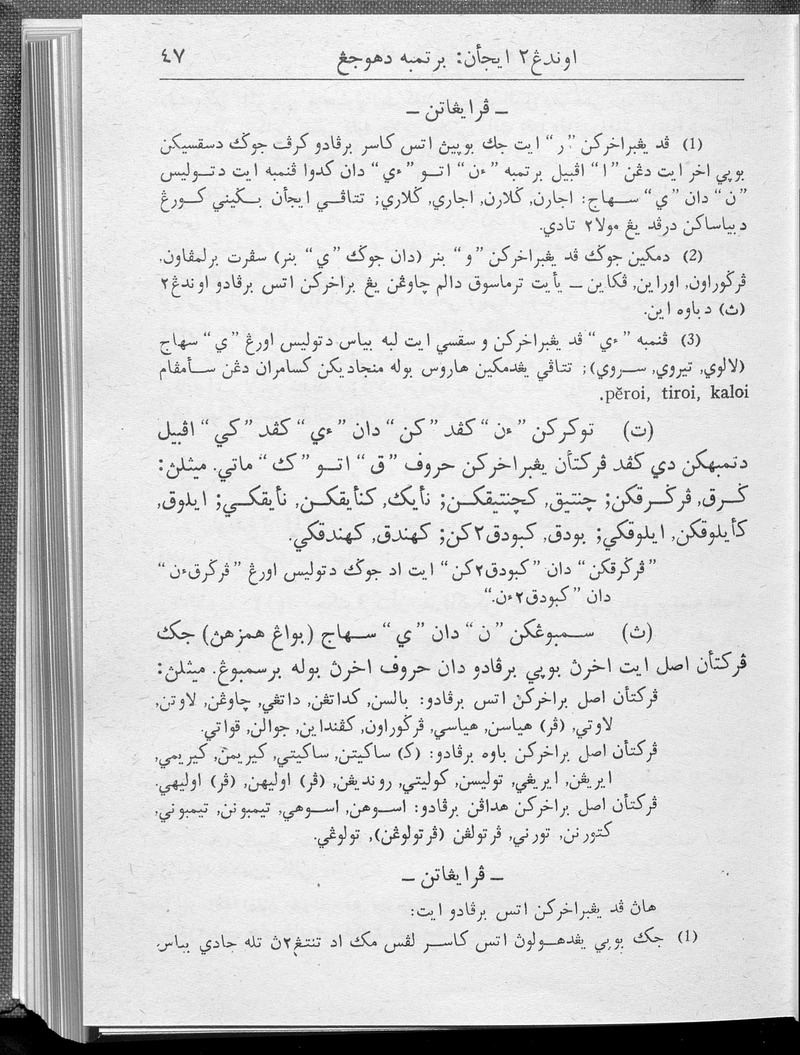 اوندڠ٢ ايجأن: برتمبه دهوجڠ ٤٧
ــ ڤرايڠاتن ــ
(1) ڤد يڠبراخرکن ”ر“ ايت جک بوڽين اتس کاسر برڤادو کرڤ جوݢ دسقسيکن
بوڽي اخر ايت دڠن ”ا“ اڤبيل برتمبه ”ءن“ اتو ”ءي“ دان کدوا ڤنمبه ايت دتوليس
”ن“ دان ”ي“ سهاج: اجارن, ݢلارن, اجاري, ݢلاري; تتاڤي ايجأن بݢيني کورڠ
دبياساکن درڤد يڠ مولا٢ تادي.
(2) دمکين جوݢ ڤد يڠبراخرکن ”و“ بنر (دان جوݢ ”ي“ بنر) سڤرت برلمڤاون,
ڤرݢوراون, اوراين, ڤکاين ــ يأيت ترماسوق دالم چاوڠن يڠ براخرکن اتس برڤادو اوندڠ٢
(ث) دباوه اين.
(3) ڤنمبه ”ءي“ ڤد يڠبراخرکن و سقسي ايت لبه بياس دتوليس اورڠ ”ي“ سهاج
(لالوي, تيروي, سروي); تتاڤي يڠدمکين هاروس بوله منجاديکن کسامران دڠن سأمڤام
pĕroi, tiroi, kaloi.
(ت) توکرکن ”ءن“ کڤد ”کن“ دان ”ءي“ کڤد ”کي“ اڤبيل
دتمبهکن دي کڤد ڤرکتأن يڠبراخرکن حروف ”ق“ اتو ”ك“ ماتي. ميثلن:
ݢرق, ڤرݢرقکن; چنتيق, کچنتيقکن; نأيک, کنأيقکن, نأيقکي; ايلوق,
کأيلوقکن, ايلوقکي; بودق, کبودق٢کن; کهندق, کهندقکي.
”ڤرݢرقکن“ دان ”کبودق٢کن“ ايت اد جوݢ دتوليس اورڠ ”ڤرݢرقءن“
دان ”کبودق٢ءن.“
(ث) سمبوڠکن ”ن“ دان ”ي“ سهاج (بواڠ همزهن) جک
ڤرکتأن اصل ايت اخرن بوڽي برڤادو دان حروف اخرن بوله برسمبوڠ. ميثلن:
ڤرکتأن اصل براخرکن اتس برڤادو: بالسن, کداتڠن, داتڠي, چاوڠن, لاوتن,
لاوتي, (ڤر) هياسن, هياسي, ڤرݢوراون, کڤنداين, جوالن, قواتي.
ڤرکتأن اصل براخرکن باوه برڤادو: (ک) ساکيتن, ساکيتي, کيريمن, کيريمي,
ايريڠن, ايريڠي, توليسن, کوليتي, رونديڠن, (ڤر) اوليهن, (ڤر) اوليهي.
ڤرکتأن اصل براخرکن هداڤن برڤادو: اسوهن, اسوهي, تيمبونن, تيمبوني,
کتورنن, تورني, ڤرتولڠن (ڤرتولوڠن), تولوڠي.
ــ ڤرايڠاتن ــ
هاڽ ڤد يڠبراخرکن اتس برڤادو ايت:
(1) جک بوڽي يڠدهولوڽ اتس کاسر لڤس مک اد تنتڠ٢ڽ تله جادي بياس